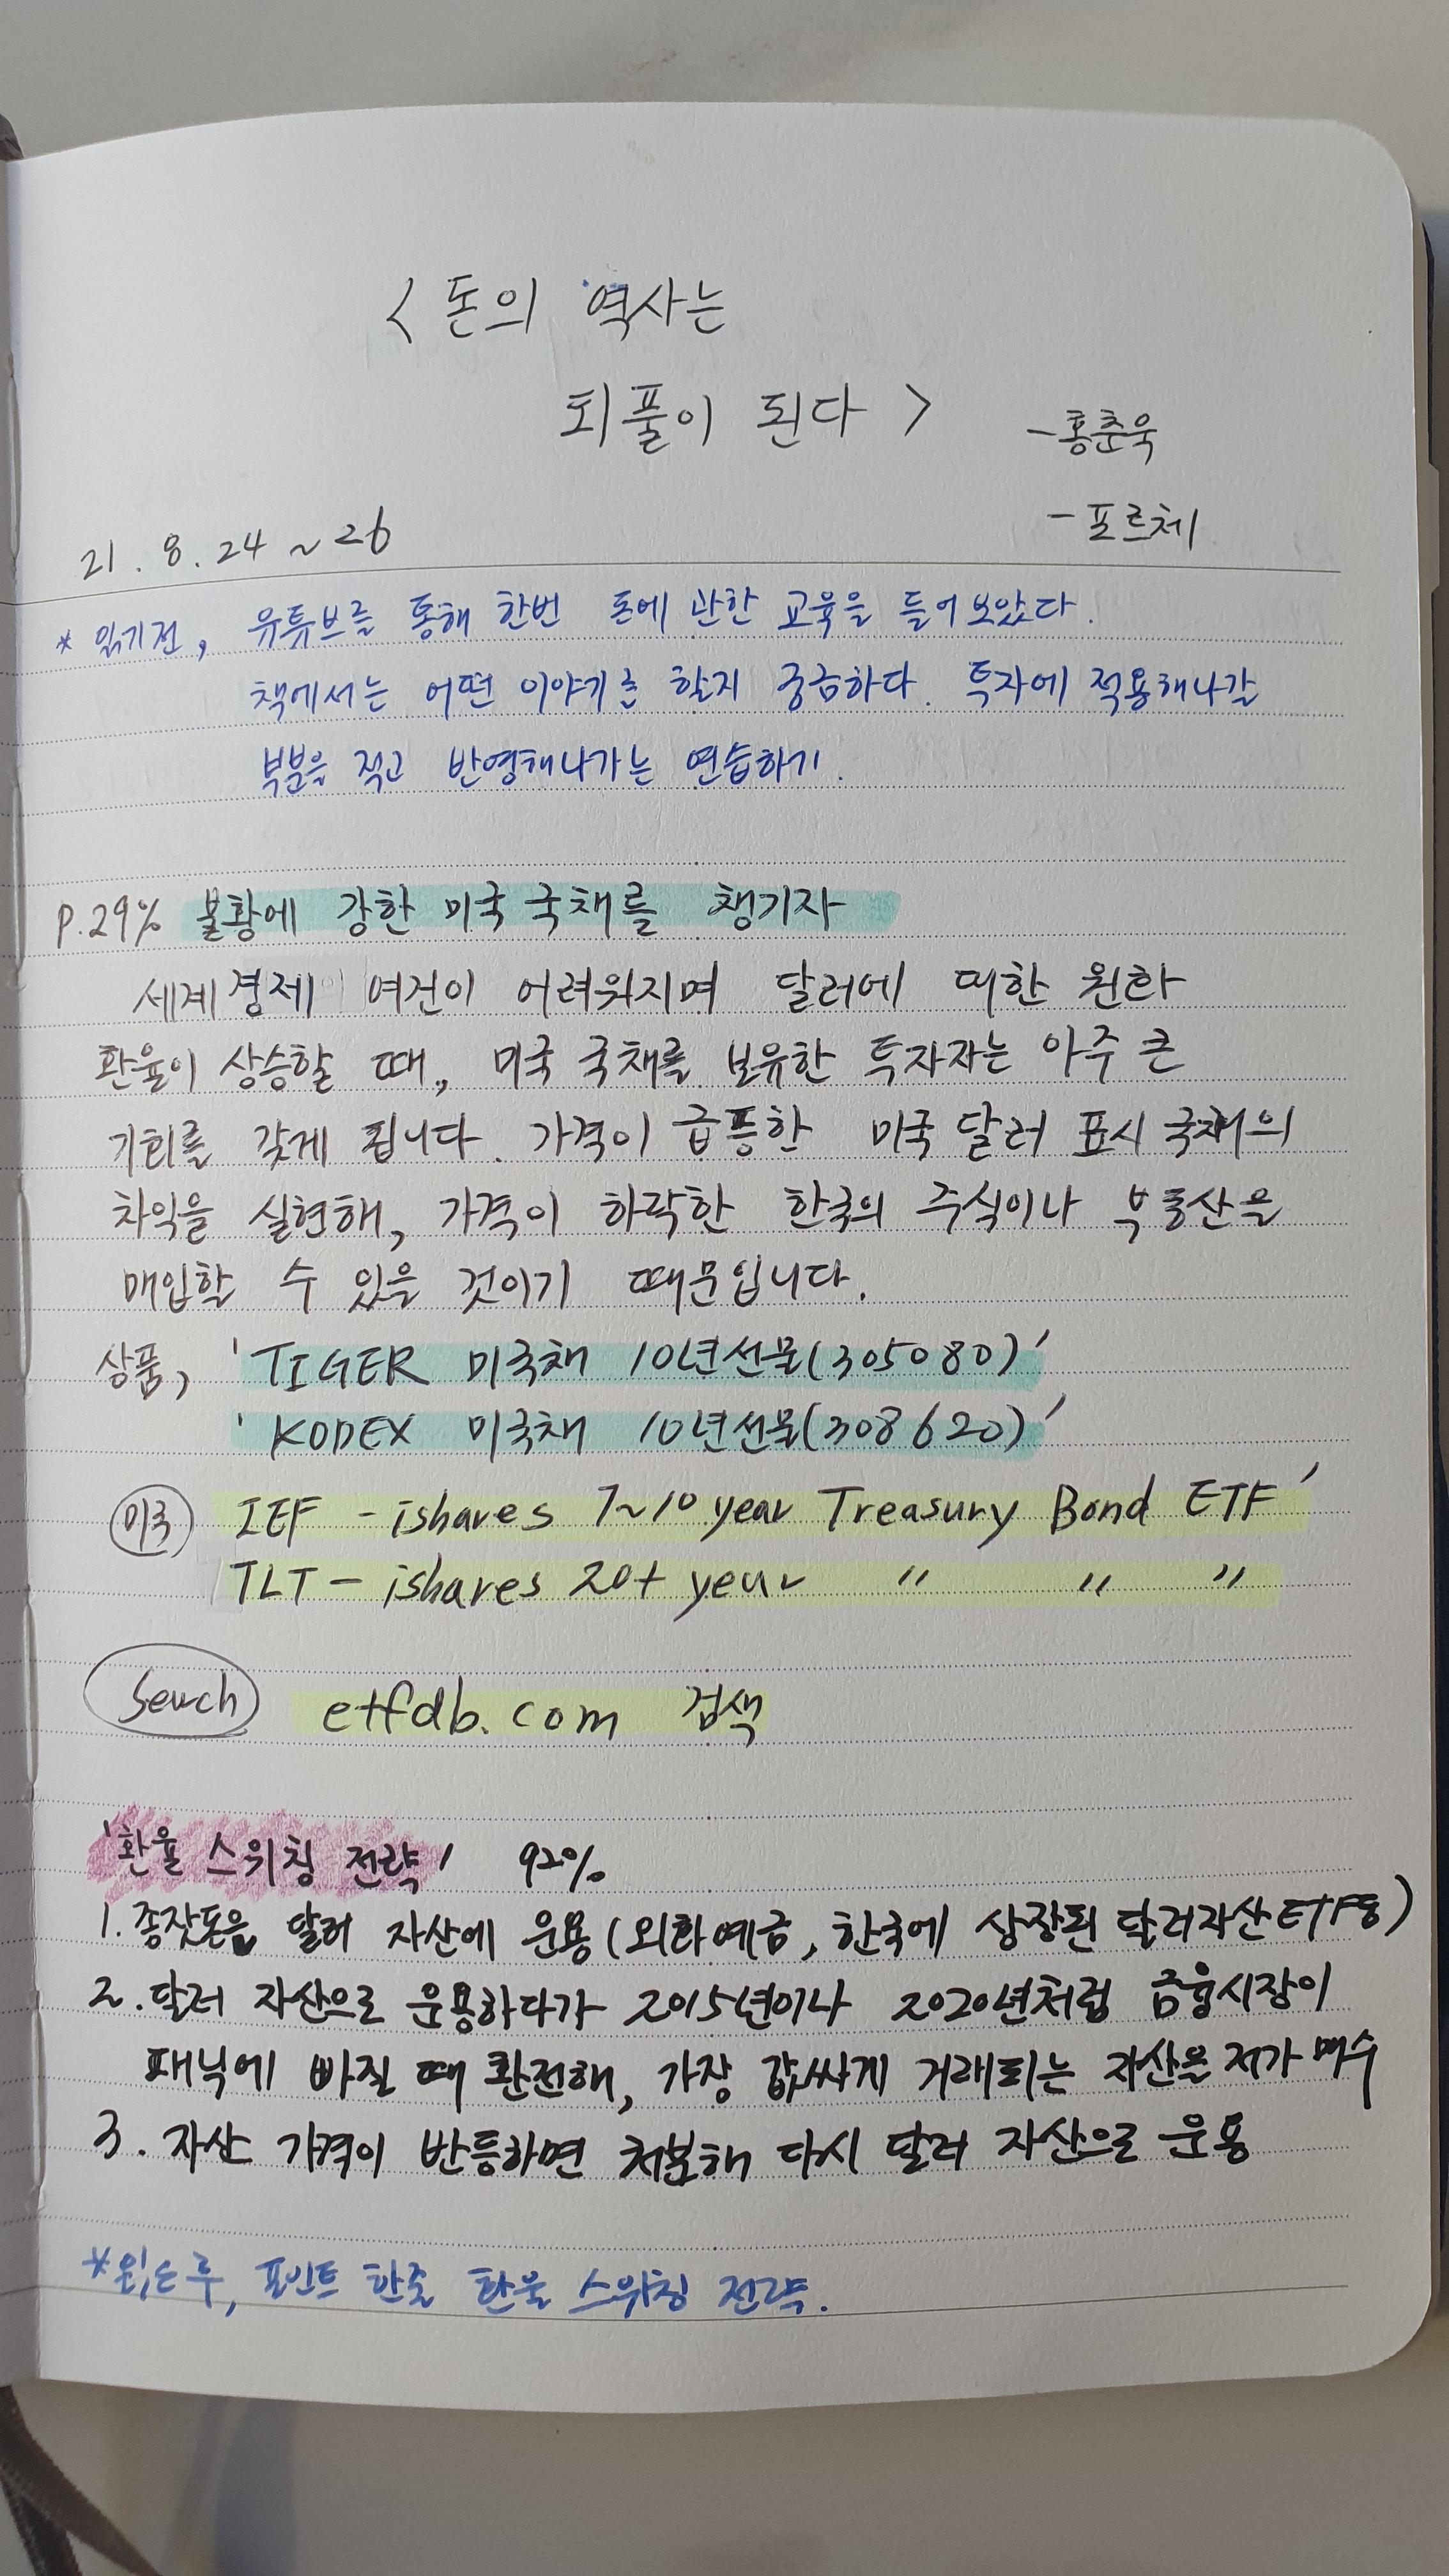 < 돈의 역사는
되풀이 된다 >
- 홍춘욱
- 포르체
21. 8. 24 ~ 26
* 읽기전, 유튜브를 통해 한번 돈에 관한 교육을 들어보았다.
책에서는 어떤 이야기를 할지 궁금하다. 투자에 적용해나갈
부분을 적고 반영해나가는 연습하기.
P.29% 불황에 강한 미국 국채를 챙기자
세계경제 여건이 어려워지며 달러에 대한 원화
환율이 상승할 때, 미국 국채를 보유한 투자자는 아주 큰
기회를 갖게 됩니다. 가격이 급등한 미국 달러 표시 국채의
차익을 실현해, 가격이 하락한 한국의 주식이나 부동산을
매입할 수 있을 것이기 때문입니다.
상품, 'TIGER 미국채 10년선물(305080)'
'KODEX 미국채 10년선물(308620)'
미국 IEF - ishares 7~10 year Treasury Bond ETF'
TLT - ishares 20+ year " " "
Search etfdb.com 검색
'환율 스위칭 전략' 92%
1. 종잣돈을 달러 자산에 운용(외화예금, 한국에 상장된 달러자산ETF등)
2. 달러 자산으로 운용하다가 2015년이나 2020년처럼 금융시장이
패닉에 빠질 때 환전해, 가장 값싸게 거래되는 자산을 저가 매수
3. 자산 가격이 반등하면 처분해 다시 달러 자산으로 운용
*읽은 후, 포인트 한줄 환율 스위칭 전략.